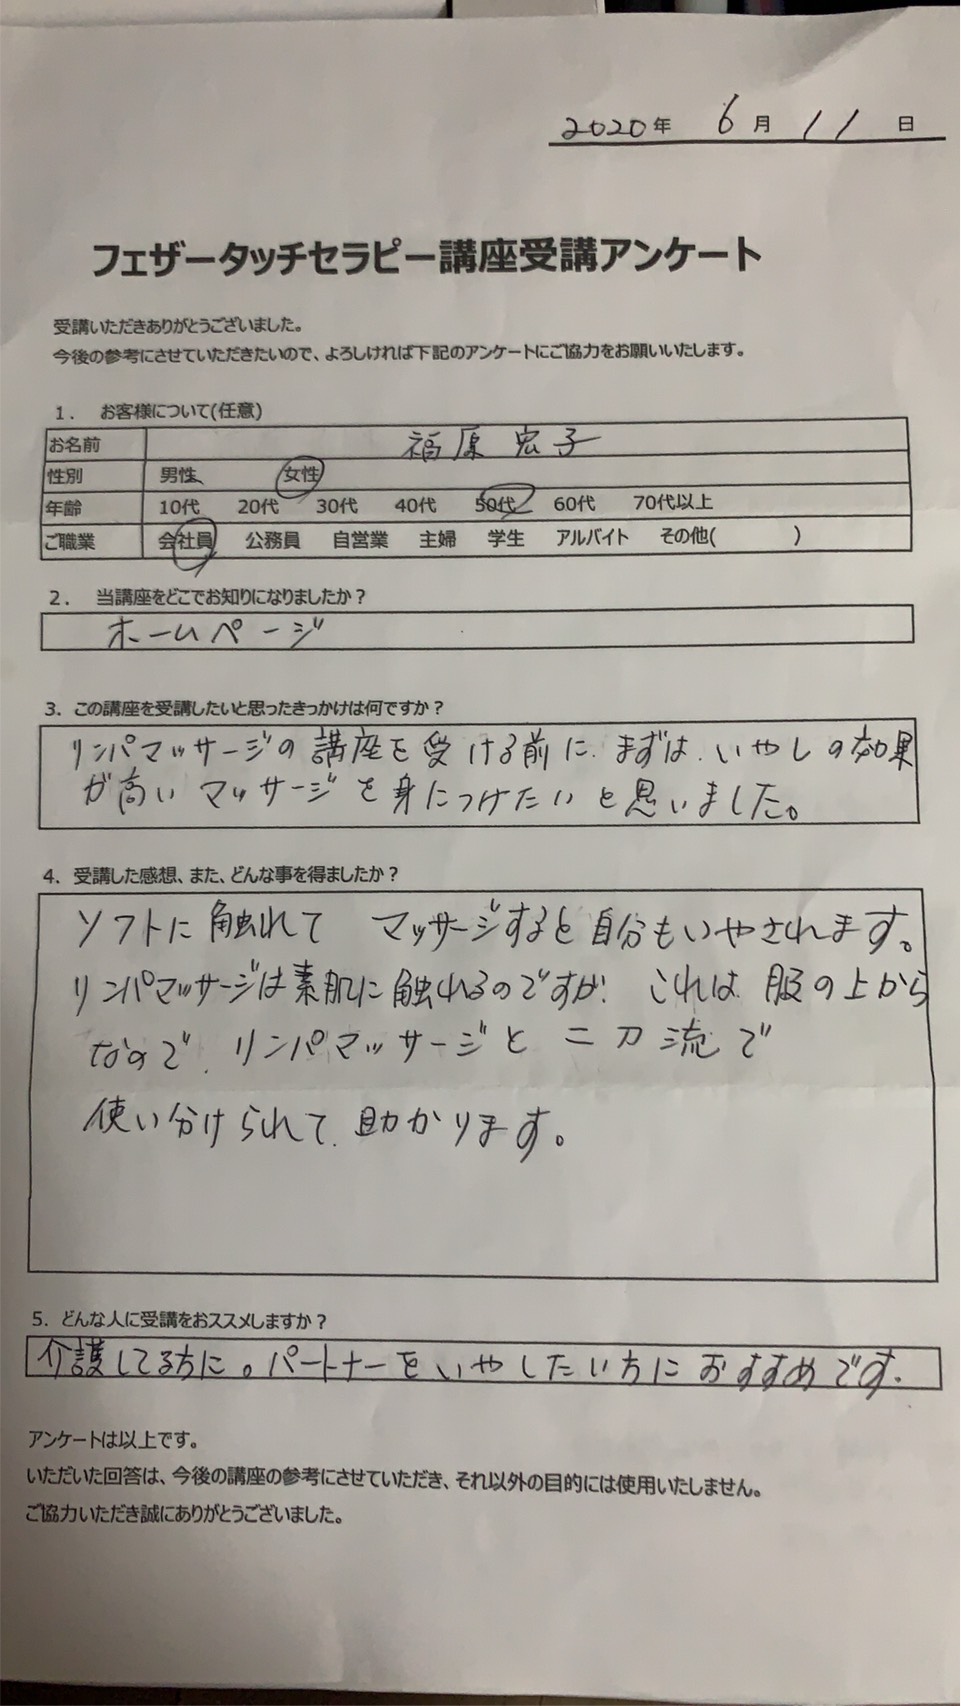 2020年 6月 11日
フェザータッチセラピー講座受講アンケート
受講いただきありがとうございました。
今後の参考にさせていただきたいので、よろしければ下記のアンケートにご協力をお願いいたします。
1. お客様について(任意)
お名前 福原 宏子
性別 男性、 女性
年齢 10代 20代 30代 40代 50代 60代 70代以上
ご職業 会社員 公務員 自営業 主婦 学生 アルバイト その他( )
2. 当講座をどこでお知りになりましたか?
ホームページ
3. この講座を受講したいと思ったきっかけは何ですか?
リンパマッサージの講座を受ける前に、まずは、いやしの効果
が高いマッサージを身につけたいと思いました。
4. 受講した感想、また、どんな事を得ましたか?
ソフトに触れて マッサージすると自分もいやされます。
リンパマッサージは素肌に触れるのですが、これは服の上から
なので、リンパマッサージと二刀流で
使い分けられて、助かります。
5. どんな人に受講をおススメしますか?
介護してる方に。パートナーをいやしたい方におすすめです.
アンケートは以上です。
いただいた回答は、今後の講座の参考にさせていただき、それ以外の目的には使用いたしません。
ご協力いただき誠にありがとうございました。